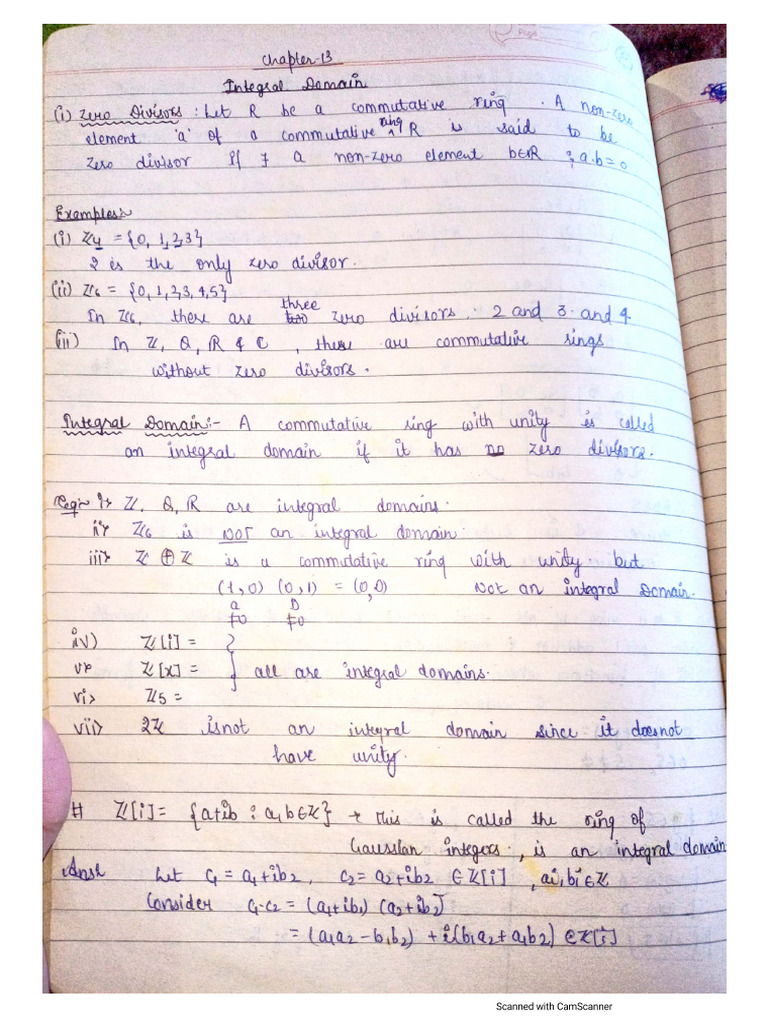 Chapter-13
Integral Domain
(i) Zero Divisors : Let R be a commutative ring . A non-zero
element 'a' of a commutative ring R is said to be
zero divisor if ∃ a non-zero element b∈R ; a.b=0
Examples
(i) Z4 = {0, 1, 2, 3}
2 is the only zero divisor.
(ii) Z6 = {0, 1, 2, 3, 4, 5}
In Z6, there are three zero divisors. 2 and 3 and 4
(iii) In Z, Q, R & C , these are commutative rings
without zero divisors.
Integral Domain:- A commutative ring with unity is called
an integral domain if it has no zero divisors.
eg:- i> Z, Q, R are integral domains.
ii> Z6 is NOT an integral domain.
iii> Z ⊕ Z is a commutative ring with unity but
(1,0) (0,1) = (0,0) Not an integral Domain.
a b
≠0 ≠0
iv) Z[i] =
v> Z[x] = } all are integral domains.
vi> Z5 =
vii> 2Z is not an integral domain since it does not
have unity.
# Z[i] = {a+ib : a,b∈Z} → This is called the ring of
Gaussian integers, is an integral domain
Ans: Let c1 = a1+ib2, c2 = a2+ib2 ∈ Z[i] , ai,bi∈Z
Consider c1.c2 = (a1+ib1) (a2+ib2)
= (a1a2-b1b2) + i(b1a2+a1b2) ∈ Z[i]
Scanned with CamScanner